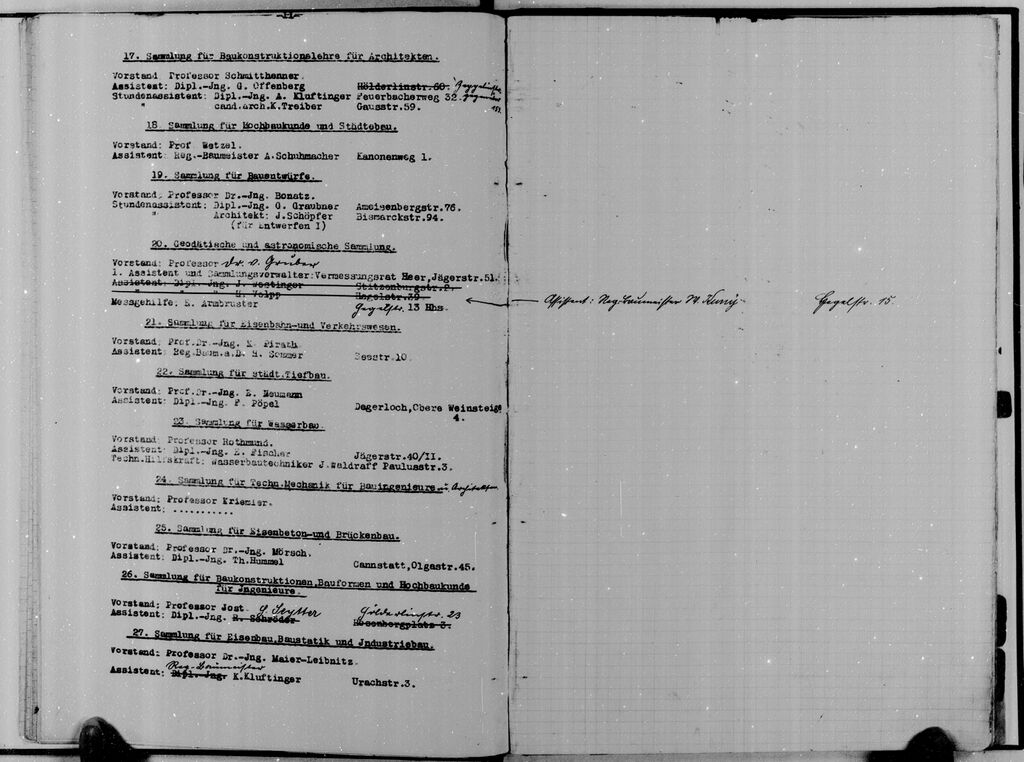 17. Sammlung für Baukonstruktionslehre für Architekten.
Vorstand Professor Schmitthenner.
Assistent: Dipl.-Jng. G. Offenberg Hölderlinstr.60.
Stundenassistent: Dipl.-Jng. A. Kluftinger Feuerbacherweg 32.
" cand.arch.K.Treiber Gausstr.59.
18 Sammlung für Hochbaukunde und Städtebau.
Vorstand: Prof. Wetzel.
Assistent: Reg.-Baumeister A.Schuhmacher Kanonenweg 1.
19. Sammlung für Bauentwürfe.
Vorstand: Professor Dr.-Jng. Bonatz.
Stundenassistent: Dipl.-Jng. G. Graubner Ameisenbergstr.76.
" Architekt: J.Schöpfer Bismarckstr.94.
(für Entwerfen I)
20. Geodätische und astronomische Sammlung.
Vorstand: Professor Dr. v. Gruber
1. Assistent und Sammlungsverwalter:Vermessungsrat Heer,Jägerstr.51.
Assistent: Dipl.-Jng. J. Stitzenburgstr.
" H. Volpp Hegelstr.39
Messgehilfe: E. Armbruster Hegelstr. 13 Hhs.
Assistent: Reg.baumeister W. König Hegelstr. 15.
21. Sammlung für Eisenbahn-und Verkehrswesen.
Vorstand: Prof.Dr.-Jng. K. Pirath
Assistent: Reg.Baum.a.D. H. Sommer Seestr.10.
22. Sammlung für städt.Tiefbau.
Vorstand: Prof.Dr.-Jng. E. Neumann
Assistent: Dipl.-Jng. F. Pöpel Degerloch,Obere Weinsteige
4.
23. Sammlung für Wasserbau.
Vorstand: Professor Rothmund.
Assistent: Dipl.-Jng. E. Fischer Jägerstr.40/II.
Techn.Hilfskraft: Wasserbautechniker J.Waldraff Paulusstr.3.
24. Sammlung für Techn.Mechanik für Bauingenieure - Architekten
Vorstand: Professor Kriemler.
Assistent: ..........
25. Sammlung für Eisenbeton-und Brückenbau.
Vorstand: Professor Dr.-Jng. Mörsch.
Assistent: Dipl.-Jng. Th.Hummel Cannstatt,Olgastr.45.
26. Sammlung für Baukonstruktionen,Bauformen und Hochbaukunde
für Jngenieure.
Vorstand: Professor Jost.
Assistent: Dipl.-Jng. R. Schröder G. Seytter Hölderlinstr. 23
Rosenbergplatz 3.
27. Sammlung für Eisenbau,Baustatik und Jndustriebau.
Vorstand: Professor Dr.-Jng. Maier-Leibnitz.
Reg.-Baumeister
Assistent: Dipl.-Jng. K.Kluftinger Urachstr.3.